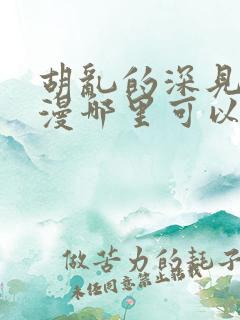 胡乱的深见
漫那里可以
做苦力的耗子
未经同意禁止转载